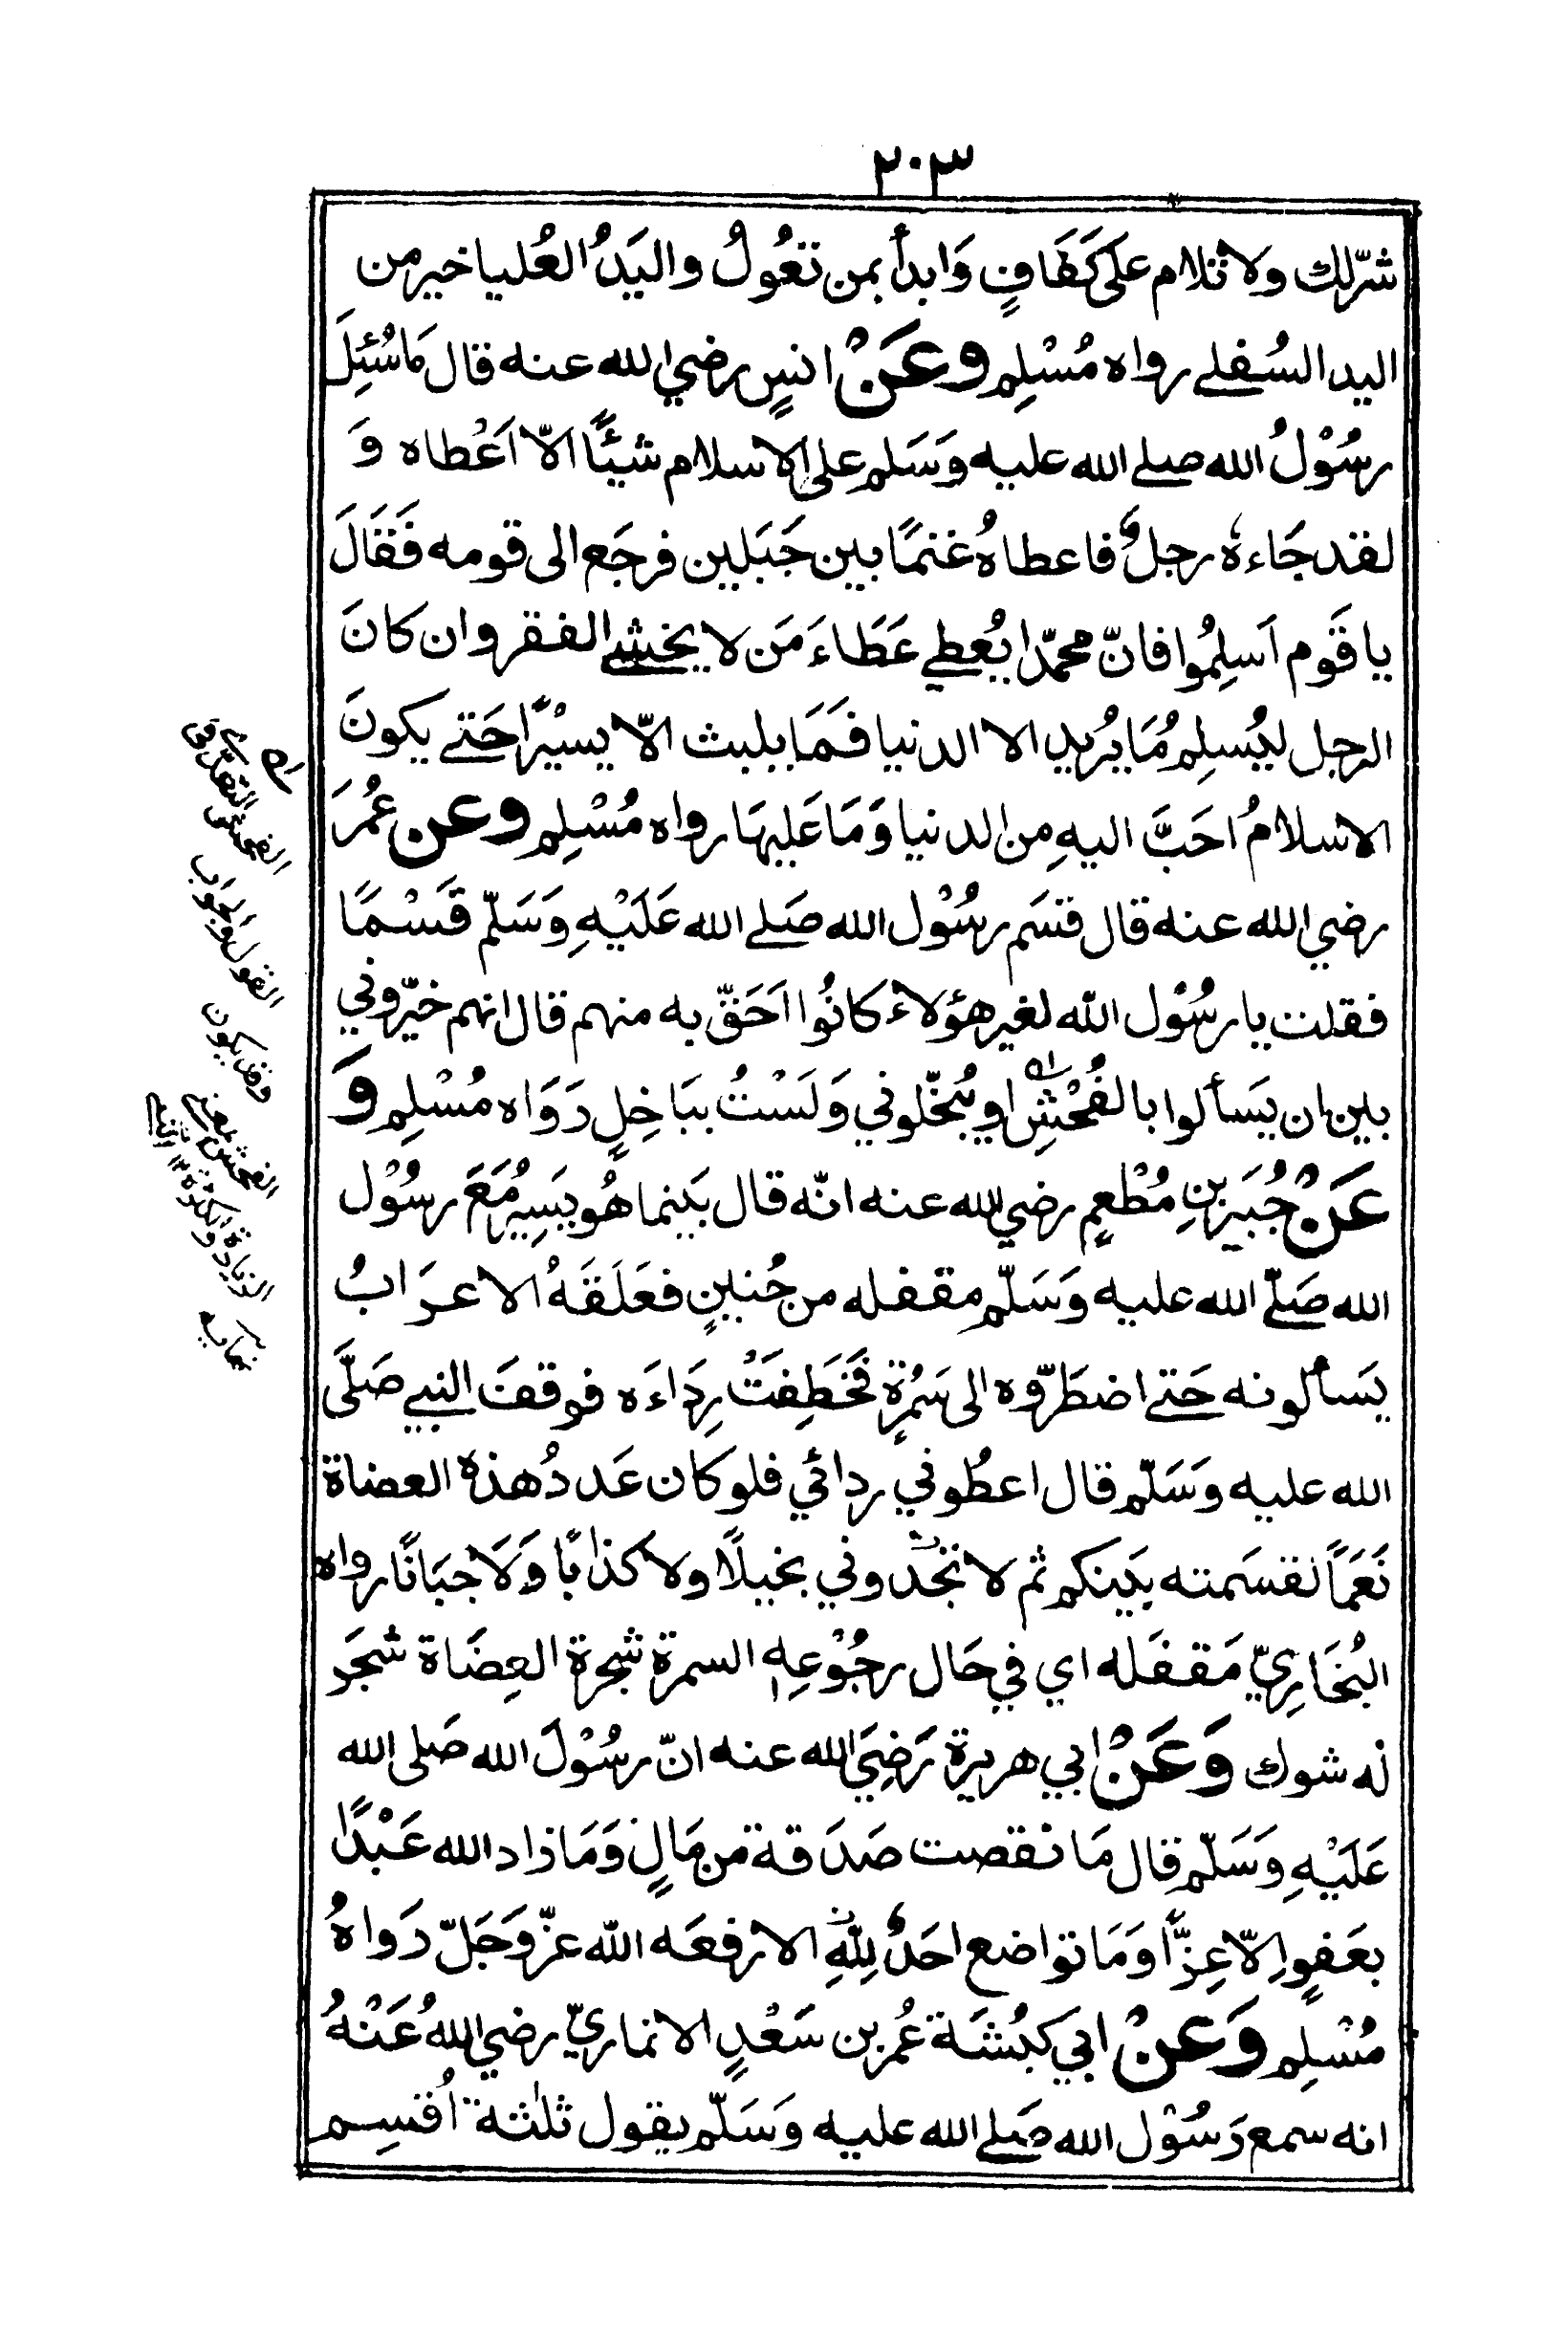 ٢٠٣
شرّلك ولا تلام على كَفَافٍ وَابدأ بمن تعُولُ واليَدُ العُليا خير من
اليد السُفلے رواه مُسْلِم وعَنْ انسٍ رضي الله عنه قال مَاسُئِلَ
رسُوْلُ الله صلے الله عليه وَسَلم على الاسلام شيئًا الّا اَعْطاه وَ
لقد جَاءهٗ رجلٌ فاعطاهُ غنمًا بين جَبَلين فرجَع الى قومه فَقَالَ
يا قَوم اَسلِمُوا فانّ محمّدا يُعطي عَطَاءَ مَن لا يخشے الفقر وان كانَ
الرجل ليُسلِمُ مَا يُريد الا الدنيا فَمَا يلبث الّا يسيْرًا حَتے يكونَ
الاسلامُ احَبَّ اليهِ من الدنيا وَمَا عَليهَا رواه مُسْلِم وعن عُمرَ
رضي الله عنه قال قسَم رسُوْل الله صَلے الله عَلَيْهِ وَسَلّم قَسْمًا
فقلت يا رسُوْل الله لغير هؤلاء كانُوا اَحَقّ به منهم قال انهم خيّروني
بين ان يَسألوا بالفُحْشِ او يُبخّلوني وَلَسْتُ ببَاخِلٍ رَوَاه مُسْلِم وَ
عَنْ جُبَير بنِ مُطْعِمٍ رضي الله عنه انّه قال بَينما هُو يَسِيْرُ مَعَ رسُوْل
الله صَلّے الله عليه وَسَلّم مقفله من حُنينٍ فعَلَقَهُ الاعرَابُ
يَسألونه حَتے اضطَرّوه الى سَمُرةٍ فَخَطِفَتْ رِدَاءَه فوقفَ النبي صَلَّى
الله عليه وَسَلّم قال اعطُوني ردائي فلو كان عَددُ هذهِ العضاة
نَعَمًا لقسَمته بَينكم ثم لا تجدوني بخيلًا ولا كذابًا وَلَا جبَانًا رواه
البُخَارِيّ مَقفَله اي في حَال رجُوْعِهٖ السمرة شجرة العِضَاة شجَر
له شوك وَعَنْ ابي هريرة رَضِيَ الله عنه انّ رسُوْلَ الله صَلى الله
عَلَيْهِ وَسَلّم قال مَا نقصت صَدَقة من مَالٍ وَمَا زاد الله عَبْدًا
بعَفوٍ اِلّا عِزًّا وَمَا تواضع احَدٌ لِلّٰهِ الا رفعَه الله عزّ وَجَلّ رَواهُ
مُسْلِم وَعنْ ابي كبْشَة عُمر بن سَعْدٍ الانماريّ رضي اللهُ عَنْهُ
انه سمع رَسُوْل الله صَلے الله عليه وَسَلّم يقول ثلٰثة اُقسِم
الفحش التعدّي في
القول والجواب
وقد يكون
الفحش بمعنى
الزيادة والكثرة